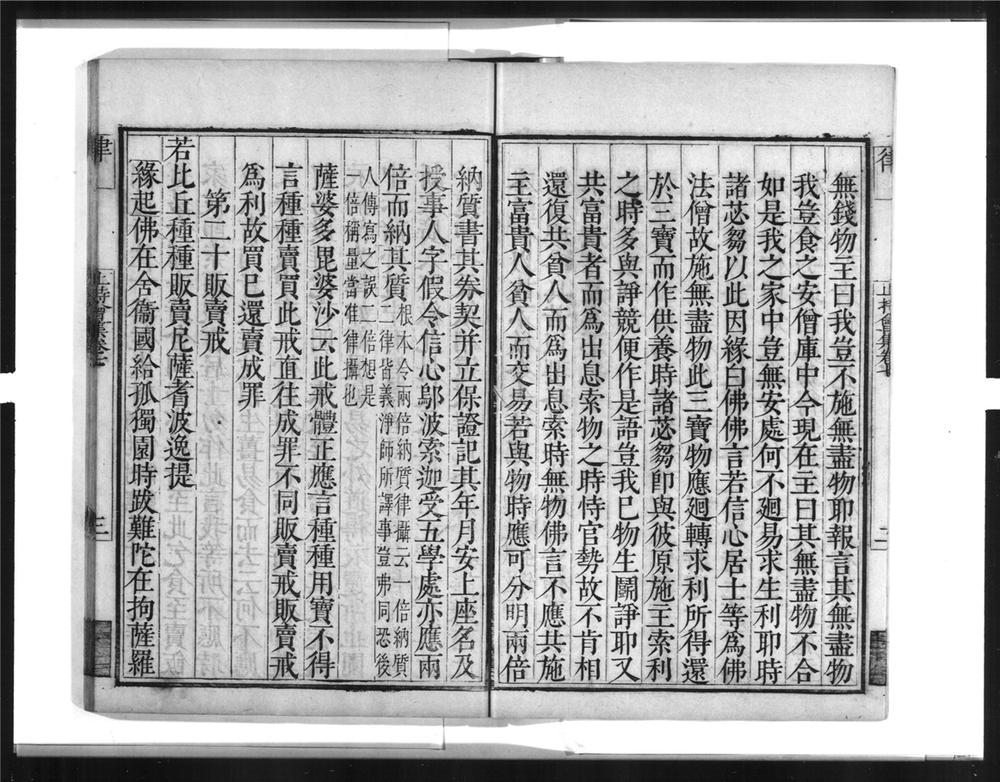 無錢物主曰我豈不施無盡物耶報言其無盡物
我豈食之安僧庫中今現在主曰其無盡物不合
如是我之家中豈無安處何不廻易求生利耶時
諸苾芻以此因緣白佛佛言若信心居士等為佛
法僧故施無盡物此三寶物應廻轉求利所得還
於三寶而作供養時諸苾芻即與彼原施主索利
之時多與諍競便作是語豈我已物生鬭諍耶又
共富貴者而為出息索物之時恃官勢故不肯相
還復共貧人而為出息索時無物佛言不應共施
主富貴人貧人而交易若與物時應可分明兩倍
納質書其券契并立保證記其年月安上座名及
授事人字假令信心鄔波索迦受五學處亦應兩
倍而納其質根本今兩倍納質律攝云一倍納質
二律皆義淨師所譯事豈弗同恐後
人傳寫之誤二倍想是
一倍稱量當准律攝也
薩婆多毘婆沙云此戒體正應言種種用寶不得
言種種賣買此戒直往成罪不同販賣戒販賣戒
為利故買已還賣成罪
第二十販賣戒
若比丘種種販賣尼薩耆波逸提
緣起佛在舍衞國給孤獨園時跋難陀在拘薩羅
律
三
二